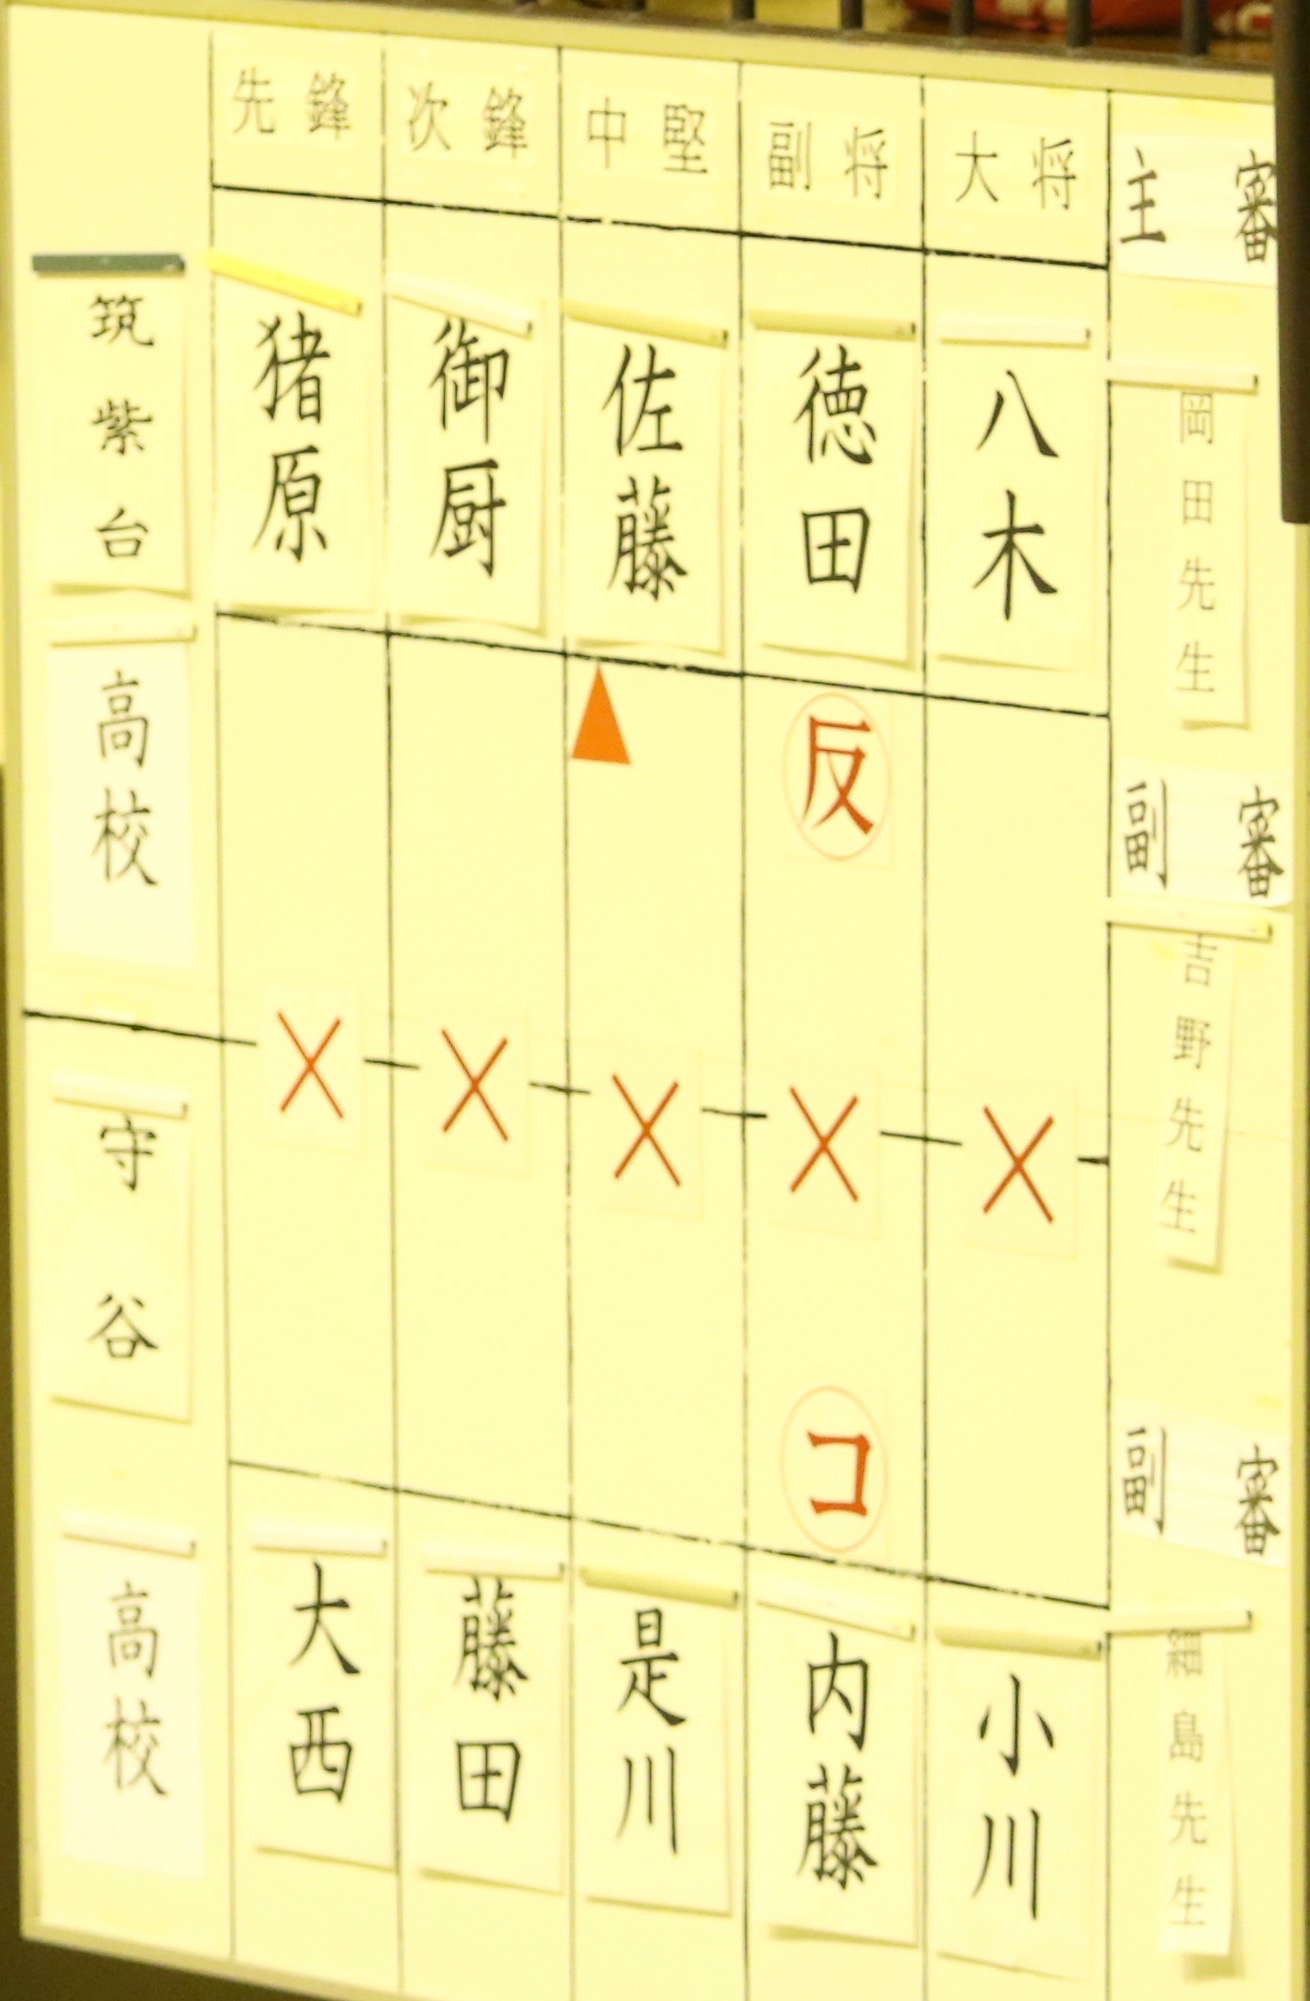 先鋒
次鋒
中堅
副将
大将
主審
筑紫台
高校
猪原
御厨
佐藤
徳田
八木
岡田先生
反
副審
吉野先生
守谷
高校
コ
副審
大西
藤田
是川
内藤
小川
細島先生